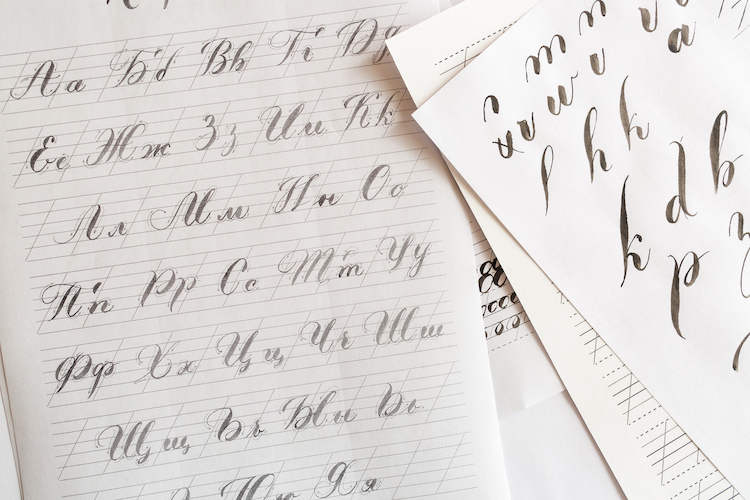 Аа Бб Вв Гг Дд
Ее Жж Зз Ии Кк
Лл Мм Нн Оо
Пп Рр Сс Тт Уу
Фф Хх Цц Чч Шш
Щщ Ъъ Ыы Ьь
Юю Яя
m n
v w v a
h k
l d b
k p